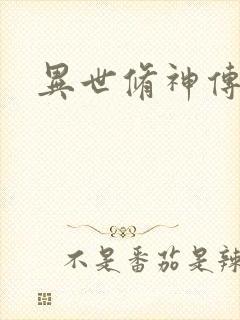 異世脩神傳
不是番茄是辣